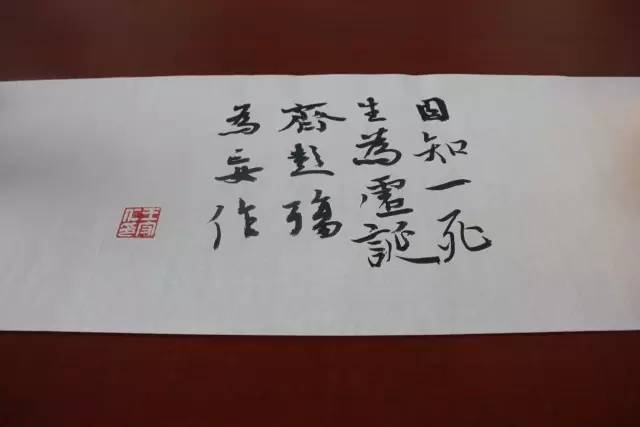 固知一死
生為虛誕
齊彭殤
為妄作